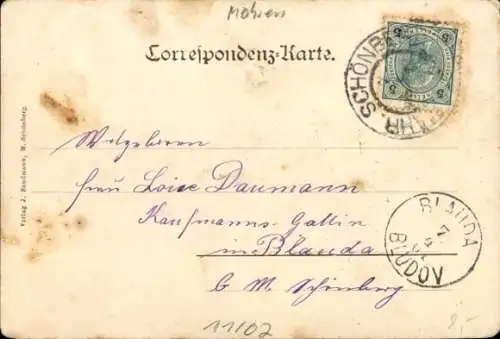 Mähren
Correspondenz-Karte.
5 5
SCHÖNBERG MÄHR.
Verlag J. Bandmann, M.-Schönberg.
Wolgeboren
Frau Loise Daumann
Kaufmanns-Gattin
in Blauda
b M. Schönberg
BLAUDA
7
BLUDOV
11/02
8,-